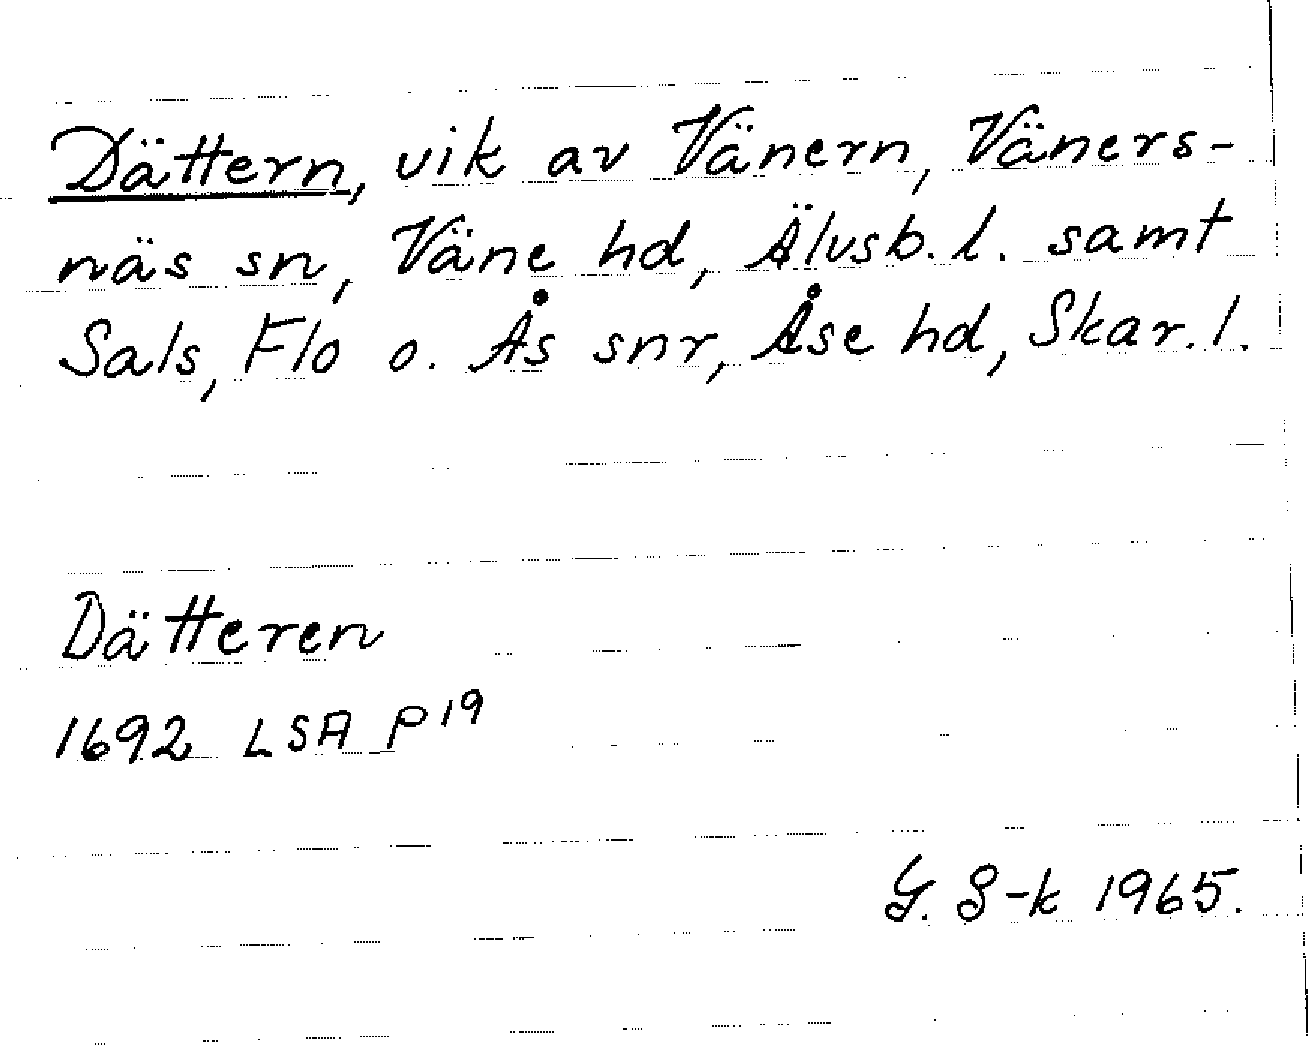 Dättern, vik av Vänern, Väners-
näs sn, Väne hd, Älvsb. l. samt
Sals, Flo o. Ås snr, Åse hd, Skar. l.
Dätteren
1692 LSA P19
G. S-k 1965.